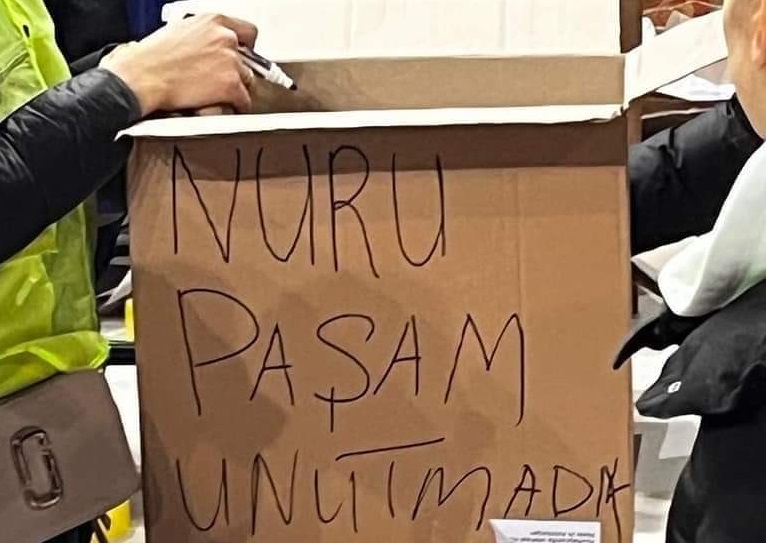 NURU
PAŞAM
UNUTMADA